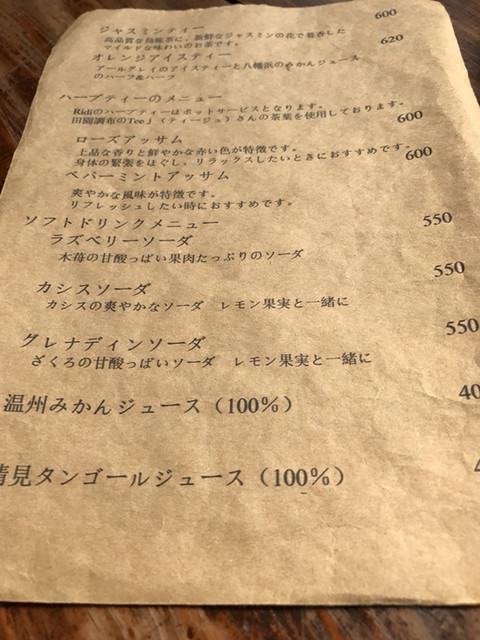 ジャスミンティー 600
高品質な烏龍茶に、新鮮なジャスミンの花で着香した
マイルドな味わいのお茶です。
オレンジアイスティー 620
アールグレイのアイスティーと八幡浜のみかんジュース
のハーフ&ハーフ
ハーブティーのメニュー
Ridiのハーブティーはポットサービスとなります。
田園調布のTee」(ティージュ)さんの茶葉を使用しております。
ローズアッサム 600
上品な香りと鮮やかな赤い色が特徴です。
身体の緊張をほぐし、リラックスしたいときにおすすめです。
ペパーミントアッサム 600
爽やかな風味が特徴です。
リフレッシュしたい時におすすめです。
ソフトドリンクメニュー
ラズベリーソーダ 550
木苺の甘酸っぱい果肉たっぷりのソーダ
カシスソーダ 550
カシスの爽やかなソーダ レモン果実と一緒に
グレナディンソーダ 550
ざくろの甘酸っぱいソーダ レモン果実と一緒に
温州みかんジュース(100%) 40
清見タンゴールジュース(100%)